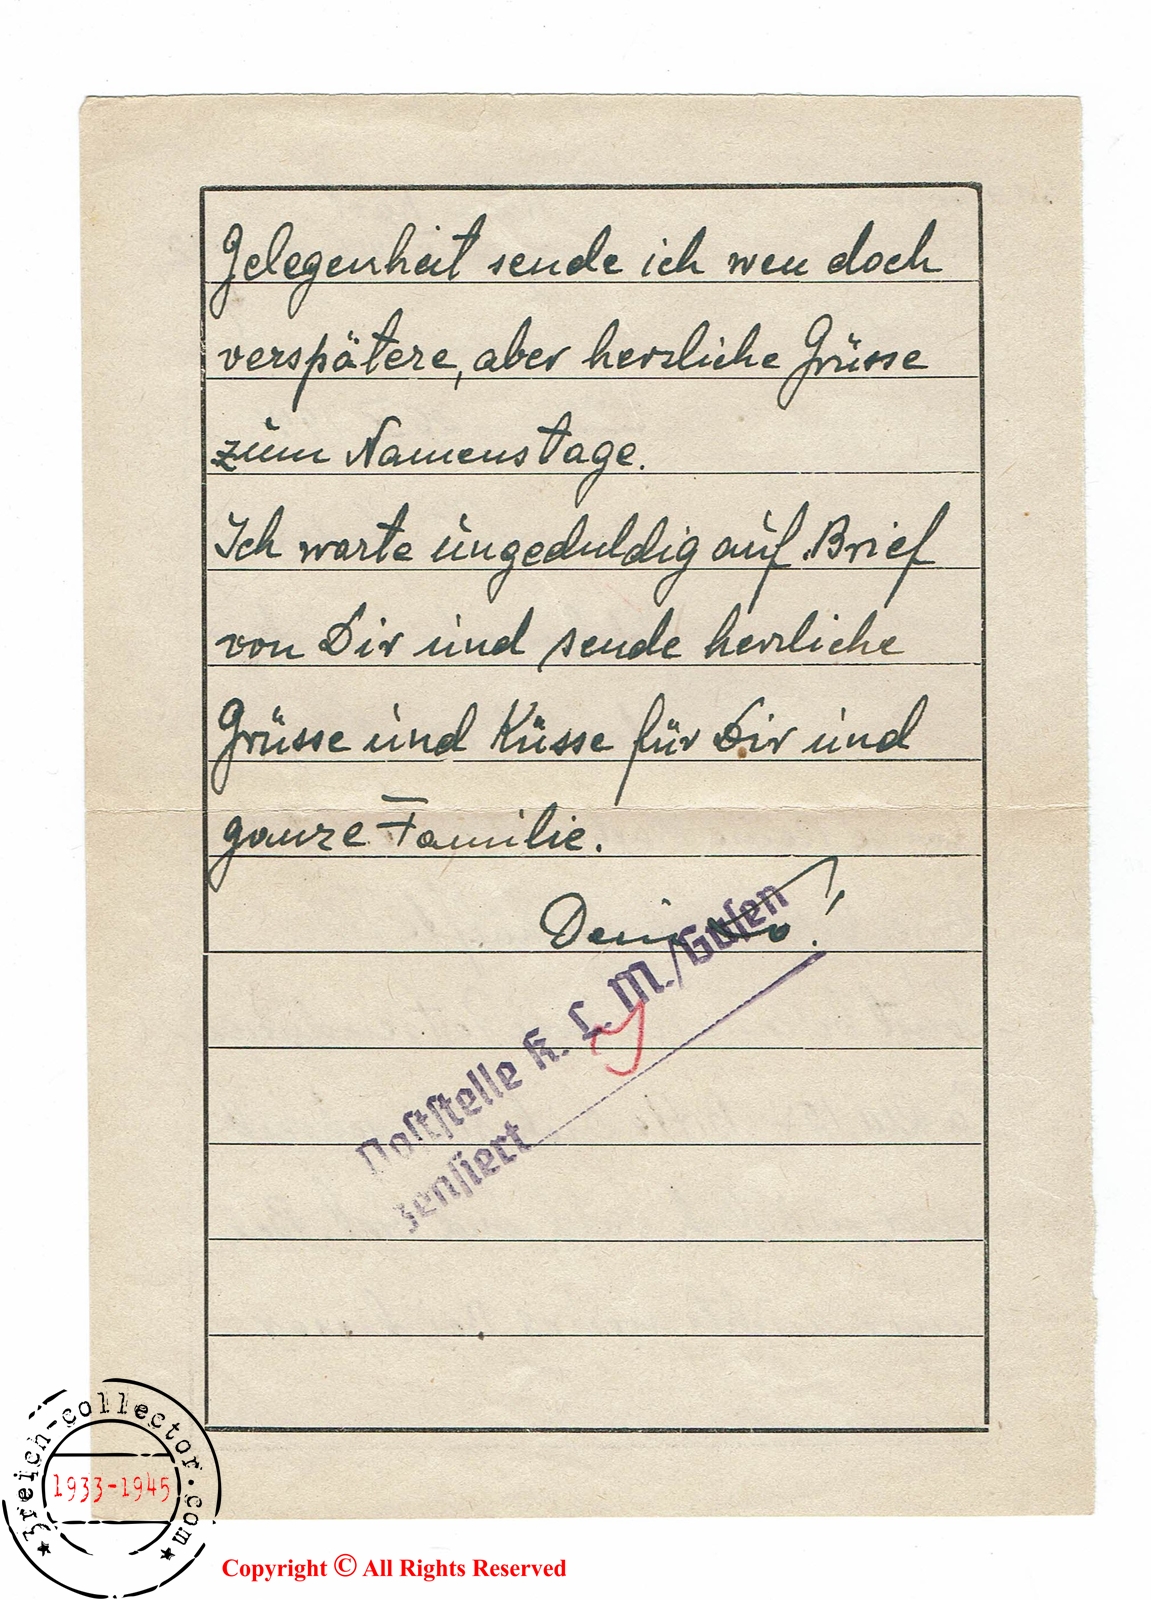 Gelegenheit sende ich wen doch
verspätere, aber herzliche Grüsse
zum Namenstage.
Ich warte ungeduldig auf Brief
von Dir und sende herzliche
Grüsse und Küsse für Dir und
ganze Familie.
Dein
Poststelle K. L. M./Gusen
zensiert
3reich-collector.com
1933-1945
Copyright © All Rights Reserved